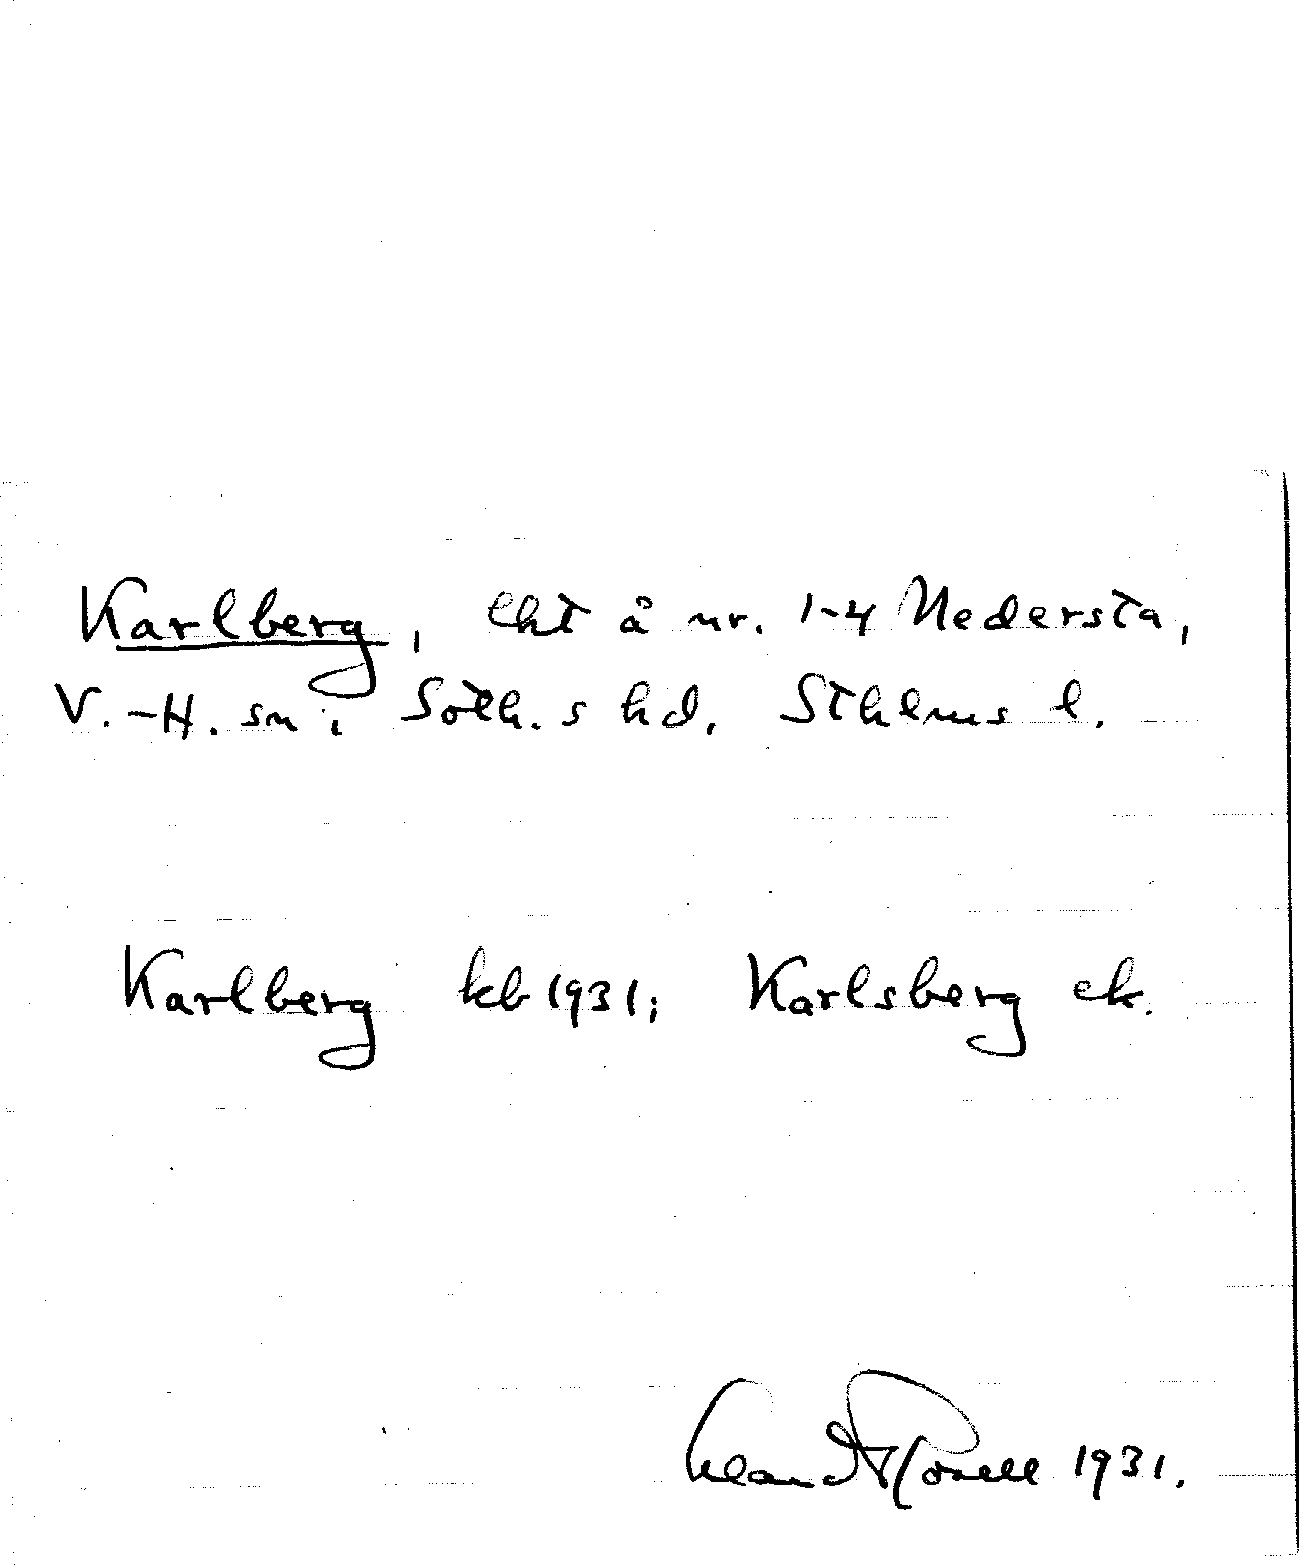 Karlberg, lht å nr. 1-4 Nedersta,
V.-H. sn i Soth.s hd, Sthlms l.
Karlberg kb 1931; Karlsberg ek.
1931.